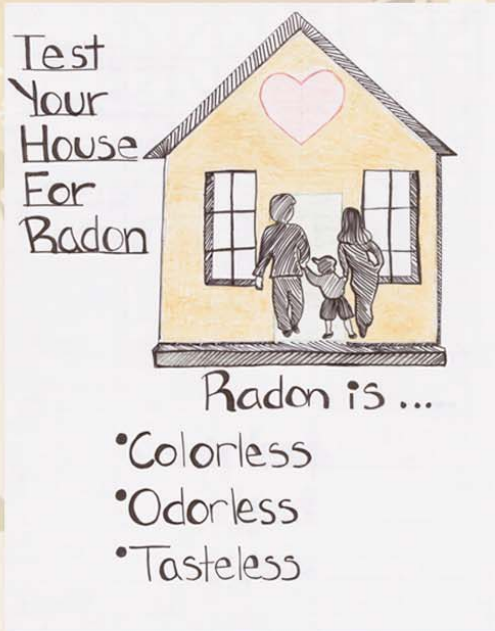 Test
Your
House
For
Radon
Radon is ...
•Colorless
•Odorless
•Tasteless